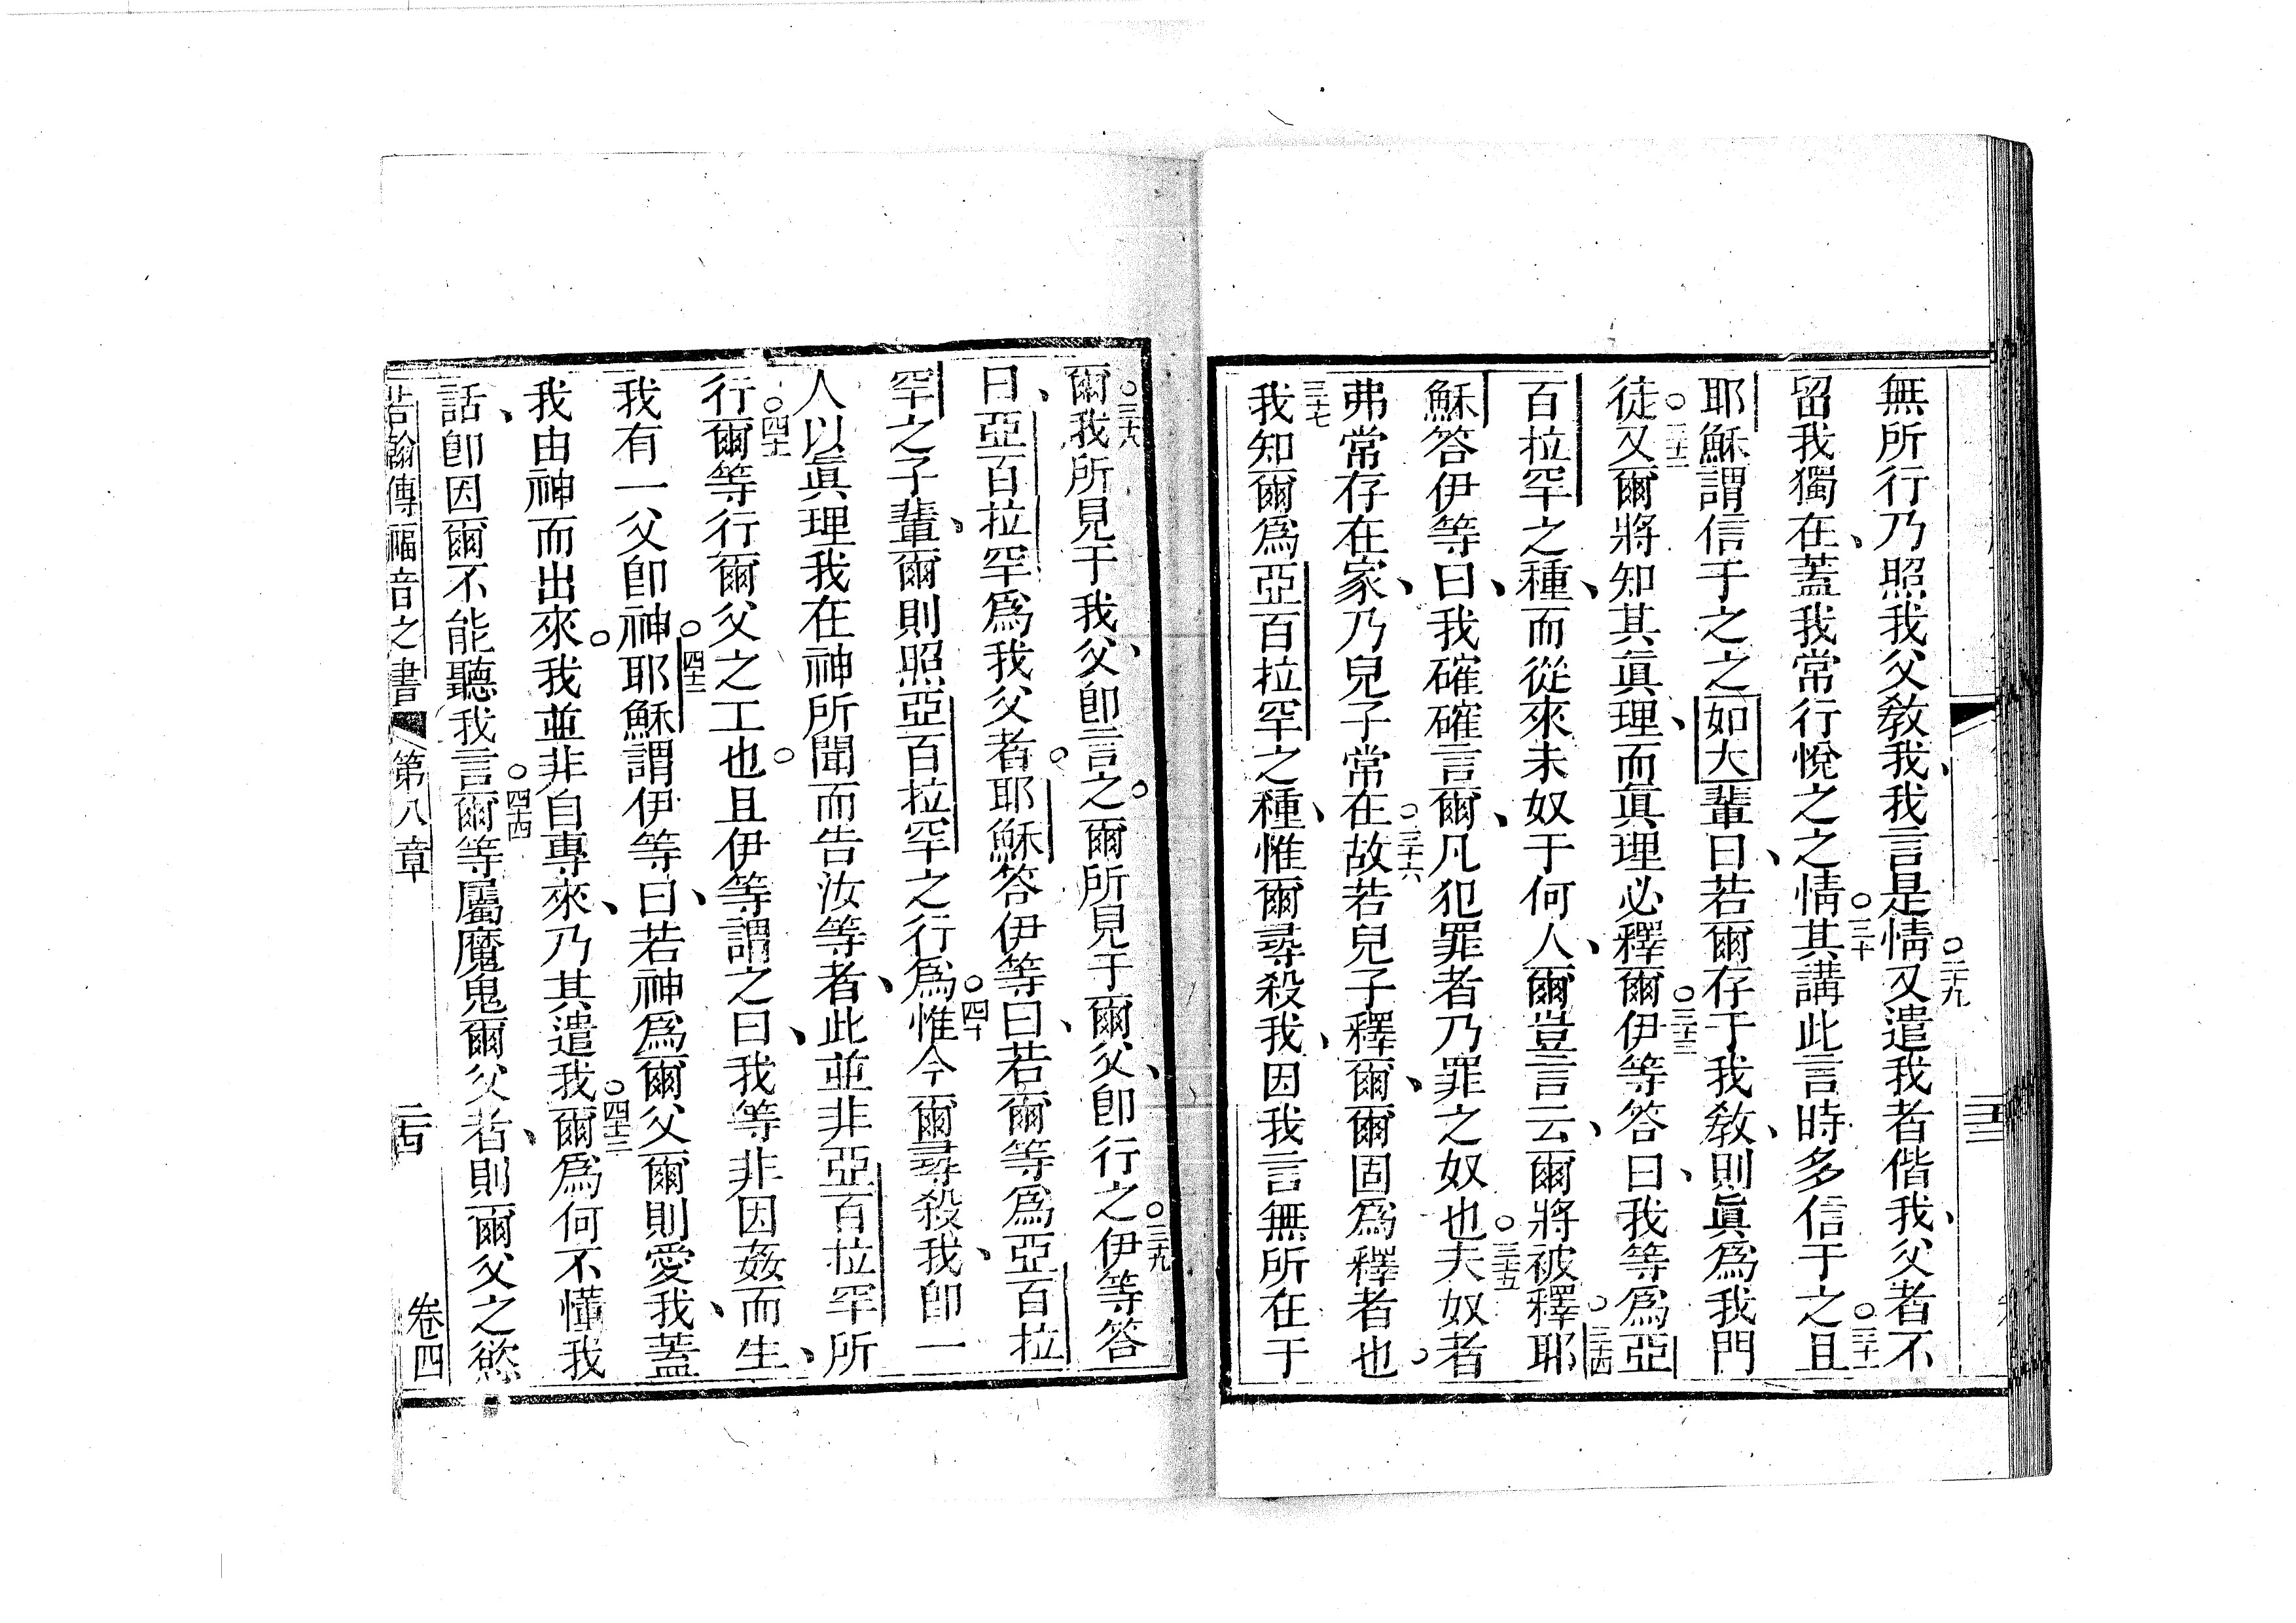 無所行乃照我父教我、我言是情○二十九又遣我者偕我、父者不
留我獨在、蓋我常行悅之之情○三十其講此言時多信于之○三十一且
耶穌謂信于之之如大輩曰、若爾存于我教、則眞爲我門
徒○三十二又爾將知其眞理、而眞理必釋爾○三十三伊等答曰、我等爲亞
百拉罕之種、而從來未奴于何人、爾豈言云、爾將被釋○三十四耶
穌答伊等曰、我確確言爾、凡犯罪者乃罪之奴也○三十五夫奴者
弗常存在家、乃兒子常在○三十六故若兒子釋爾、爾固爲釋者也○
三十七我知爾爲亞百拉罕之種、惟爾尋殺我、因我言無所在于
爾○三十八我所見于我父、卽言之○爾所見于爾父、卽行之○三十九伊等答
曰、亞百拉罕爲我父者○耶穌答伊等曰、若爾等爲亞百拉
罕之子輩、爾則照亞百拉罕之行爲○四十惟今爾尋殺我、卽一
人以眞理我在神所聞而告汝等者、此並非亞百拉罕所
行○四十一爾等行爾父之工也○且伊等謂之曰、我等非因姦而生、
我有一父卽神○四十二耶穌謂伊等曰、若神爲爾父爾則愛我、蓋
我由神而出來○我並非自專來、乃其遣我○四十三爾爲何不懂我
話、卽因爾不能聽我言○四十四爾等屬魔鬼爾父者、則爾父之慾
若翰傳福音之書 第八章 二十四 卷四